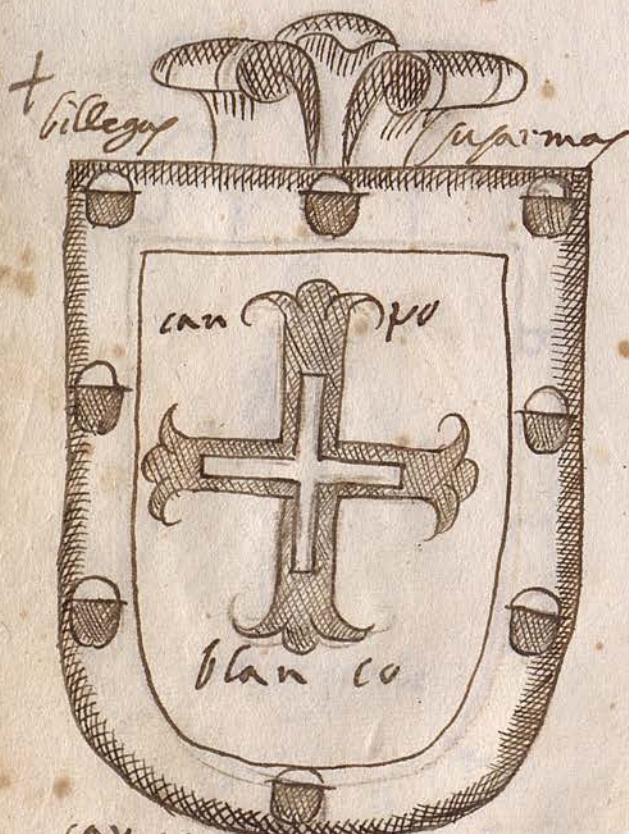 +
billegas sus armas
can po
blan co